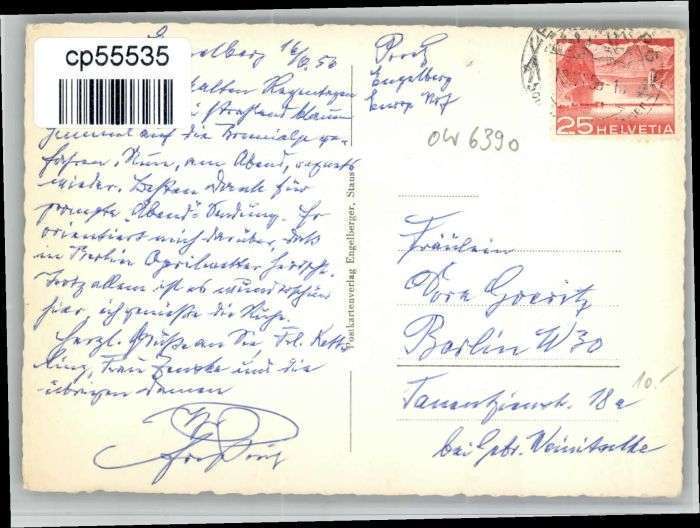 cp55535
elberg 16/6.56
kalten Regentagen
bei strahlend blauem
Himmel auf die Trennialp ge-
fahren. Nun, am Abend, regnets
wieder. Besten Dank für
prompte "Abend"-Sendung. Er
orientiert mich darüber, daß
in Berlin Aprilwetter herrscht.
Trotz allem ist es wunderschön
hier, ich genieße die Ruhe.
Herzl. Grüße an Sie, Frl. Kett-
ling, Frau Zenske und die
übrigen Damen
Ihr
Postkartenverlag Engelberger, Stans
Engelberg
Europ. Hof
OW 6390
25 HELVETIA
Fräulein
Dora Goeritz
Berlin W30
Tauentzienstr. 18a
bei Gebr. Weinitschke
10.-